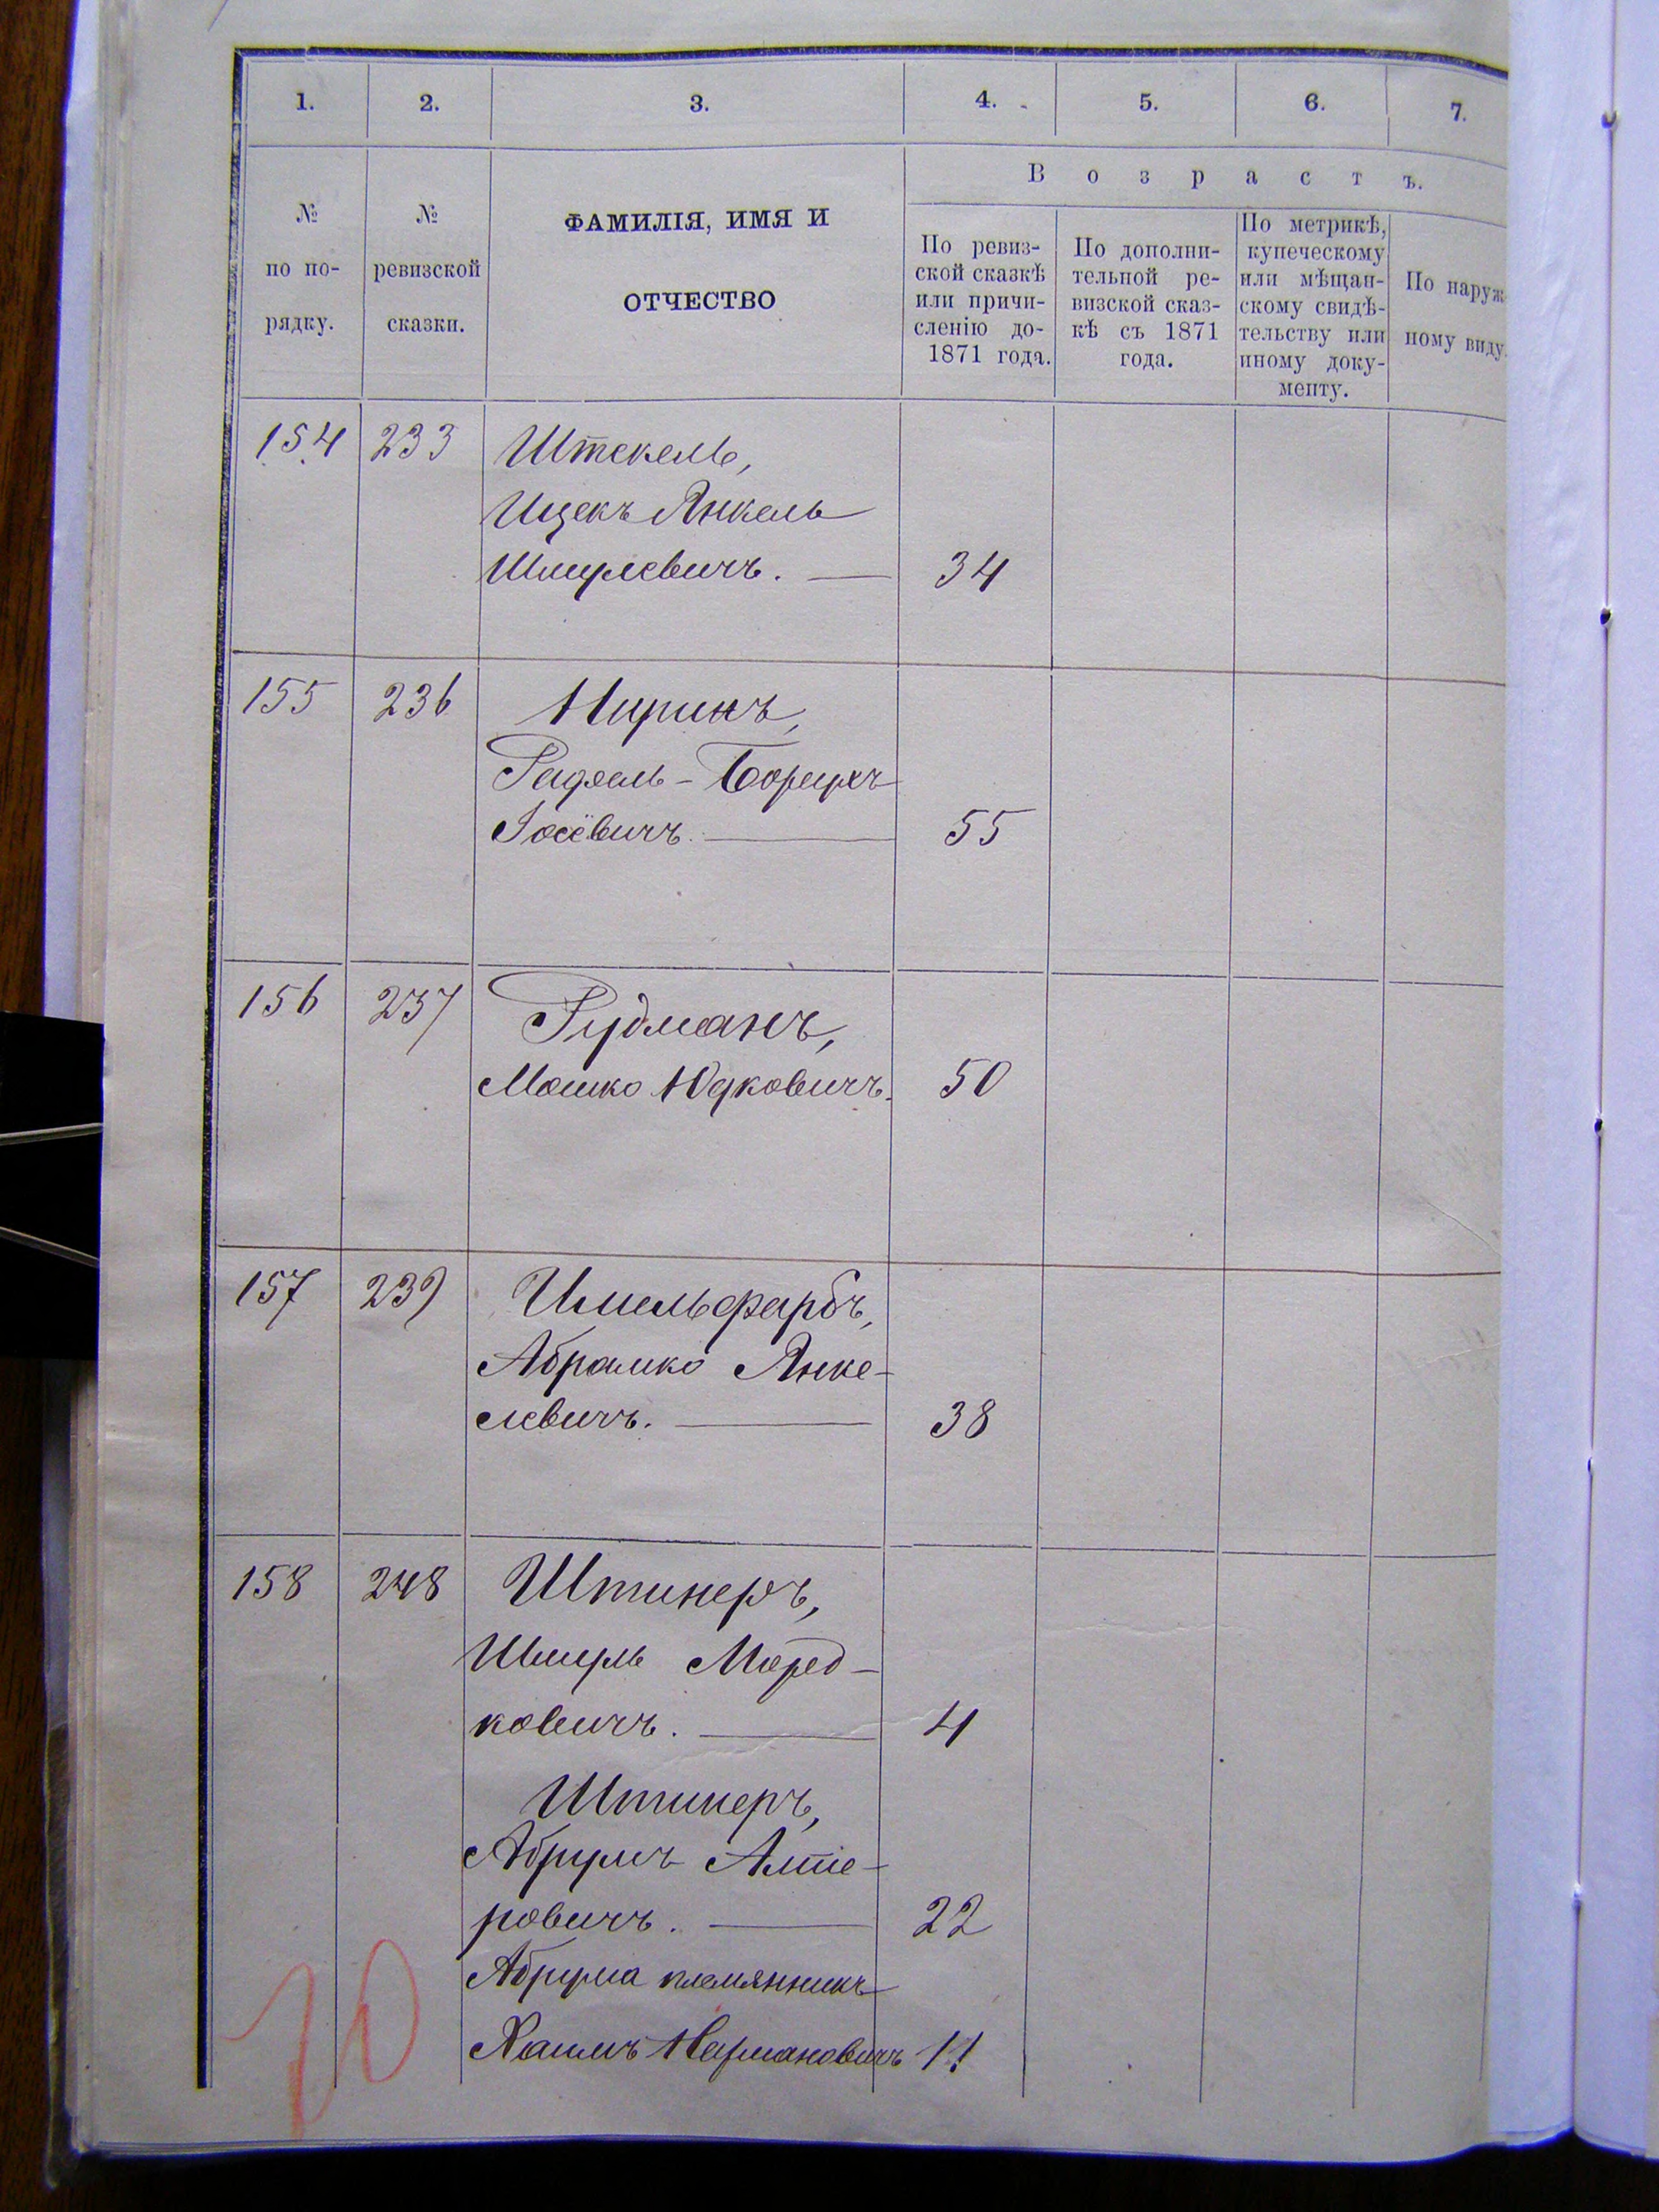 1. 2. 3. 4. 5. 6. 7.
В о з р а с т ъ.
№ по по- рядку.
№ ревизской сказки.
ФАМИЛІЯ, ИМЯ И
ОТЧЕСТВО
По ревиз-
ской сказкѣ
или причи-
сленію до-
1871 года.
По дополни-
тельной ре-
визской сказ-
кѣ съ 1871
года.
По метрикѣ,
купеческому
или мѣщан-
скому свидѣ-
тельству или
иному доку-
менту.
По наруж
ному виду.
154 233 Штекель,
Ицекъ Янкель
Шмулевичъ. — 34
155 236 Ниринъ,
Борухъ
Іосёвичъ. — 55
156 237 Рудманъ,
Мошко Юдковичъ. 50
157 239 Имельфарбъ,
Абрамко Янке-
левичъ. — 38
158 248 Штинеръ,
Шмуль Морд-
ковичъ. — 4
Штинеръ,
Абрумъ Алте-
ровичъ. — 22
Абрума племянникъ
Хаимъ Нармановичъ 11